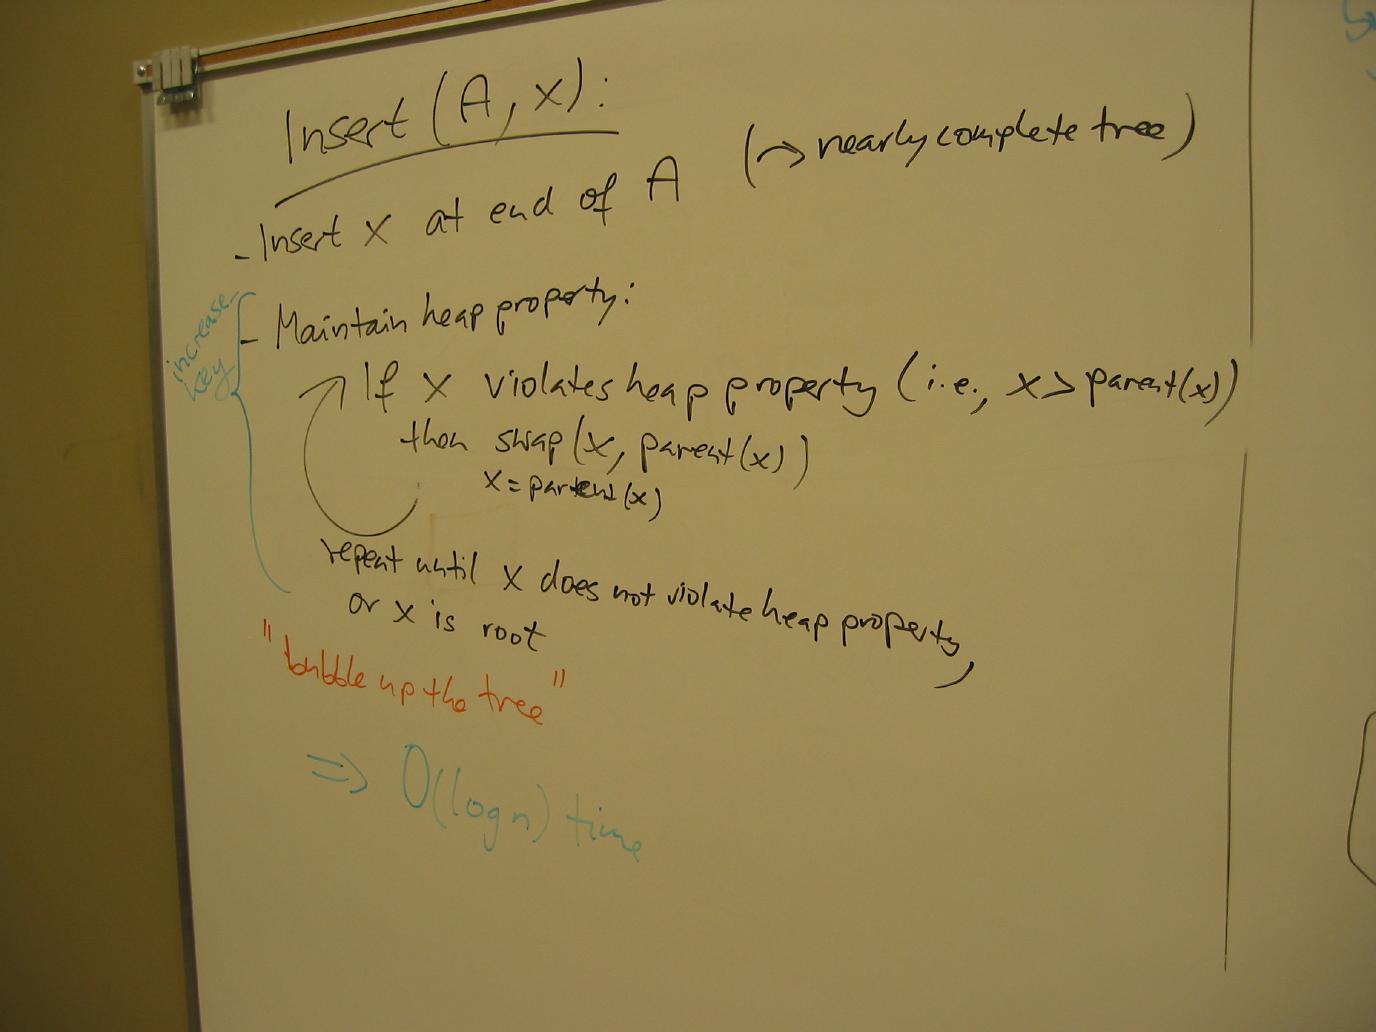 Insert (A, x):
- Insert x at end of A (→ nearly complete tree)
increase-
key
- Maintain heap property:
If x violates heap property (i.e., x > parent(x))
then swap (x, parent(x))
x = parent(x)
repeat until x does not violate heap property,
or x is root
"bubble up the tree"
⇒ O(log n) time